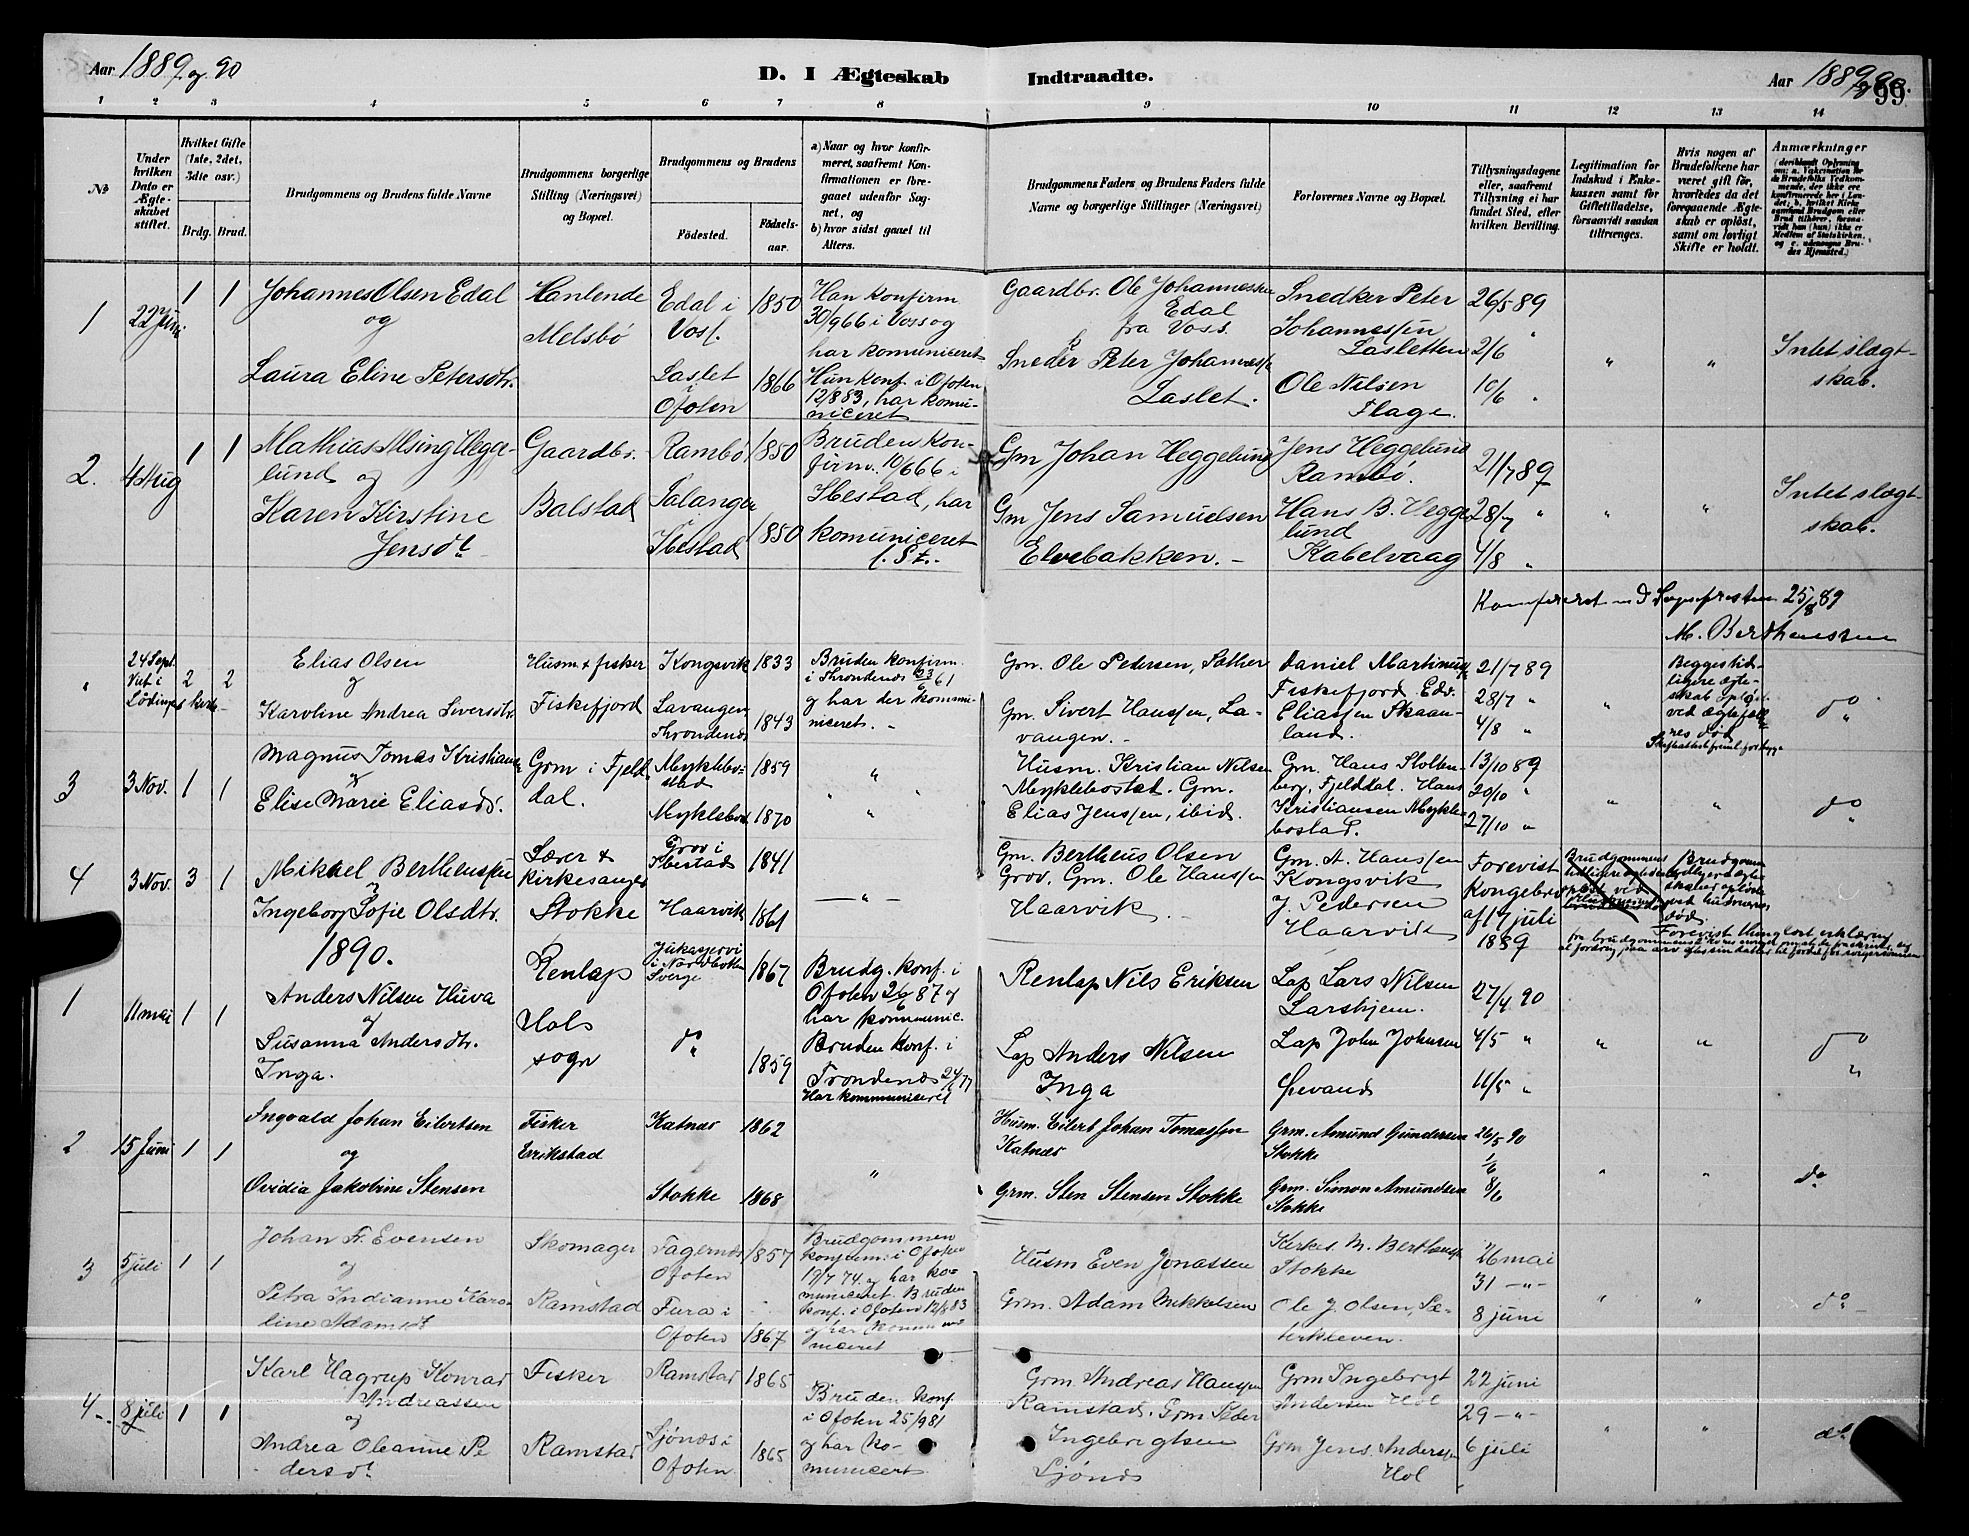 Aar 1889 og 90
D. I Ægteskab Indtraadte.
Aar 1889 og 90.
99
1 2 3 4 5 6 7 8 9 10 11 12 13 14
No
Under hvilken Dato er Ægteskabet stiftet.
Hvilket Gifte (1ste, 2det, 3die osv.)
Brdg. Brud.
Brudgommens og Brudens fulde Navne
Brudgommens borgerlige Stilling (Næringsvei) og Bopæl.
Brudgommens og Brudens
Födested.
Födselsaar.
a) Naar og hvor konfirmeret, saafremt Konfirmationen er foregaaet udenfor Sognet, og
b) hvor sidst gaaet til Alters.
Brudgommens Faders og Brudens Faders fulde Navne og borgerlige Stillinger (Næringsvei)
Forlovernes Navne og Bopæl.
Tillysningsdagene eller, saafremt Tillysning ei har fundet Sted, efter hvilken Bevilling.
Legitimation for Indskud i Enkekassen samt for Giftetilladelse, forsaavidt saadan tiltrænges.
Hvis nogen af Brudefolkene har været gift för, hvorledes da det foregaaende Ægteskab er oplöst, samt om lovligt Skifte er holdt.
Anmærkninger
1 22 Juni 1 1
Johannes Olsen Edal
og
Laura Eline Petersdtr.
Handlende
Melsbö
Edal i Voss.
1850
Laslet i Ofoten
1866
Han konfirm 30/9 66 i Voss og har komuniceret
Hun konf. i Ofoten 12/8 83, har komuniceret
Gaardbr. Ole Johannessen Edal fra Voss.
Sneder Peter Johanness Laslet.
Snedker Peter Johannessen Lasletten
Ole Nilsen Flage.
26/5 89
2/6 "
10/6 "
" "
Intet slægtskab.
2. 4 Aug 1 1
Mathias Alsing Heggelund og
Karen Kirstine Jensdt
Gaardbr.
Balstad
Rambö
1850
Salangen Ibestad
1850
Bruden konfirm. 10/6 66 i Ibestad, har komuniceret
Gm Johan Heggelund
Gm Jens Samuelsen Elvebakken.
Jens Heggelund Rambö.
Hans B. Heggelund Kabelvaag
21/7 89
28/7 "
4/8 "
" "
Intet slægtskab.
25/8 89
M. Berthenssen
" 24 Sept. Viet i Lödingens kirke 2 2
Elias Olsen
og
Karoline Andrea Siversdtr
Husm. & fisker
Fiskefjord
Kongsvik 1833
Lavangen Throndenes 1843
Bruden konfirm. i Throndenes 23/6 61 og har der kommuniceret.
Gm. Ole Pedersen, Sother
Gm. Sivert Hanssen, Lavangen.
Daniel Martinuss Fiskefjord. Edv. Eliassen Skaanland.
21/7 89
28/7 "
4/8 "
"
Begges tidligere ægteskab oplöst ved ægtefælles död
do
3 3 Nov. 1 1
Magnus Tomas Kristians
og
Elise Marie Eliasdr.
Grm i Fjelddal.
Myklebostad 1859
Myklebost 1870
"
Husm. Kristian Nilsen Myklebostad. Gm. Elias Jenssen, ibid.
Gm. Hans Stoltenberg, Fjelddal. Hans Kristiansen Myklebostad.
13/10 89
20/10 "
27/10 "
" "
do
4 3 Nov. 3 1
Mikael Berthenssen
og
Ingeborg Sofie Olsdtr.
Lærer & kirkesanger
Stokke
Grov i Ibestad 1841
Haarvik 1861
— " —
Gm. Bertheus Olsen Grov, Gm. Ole Hanssen Haarvik
Gm. A. Hanssen Kongsvik
J. Pedersen Haarvik
Forevist Kongebrev af 17 juli 1889
1890.
1 11 mai 1 1
Anders Nilsen Huva
og
Susanna Andersdtr. Inga.
Renlap
Hols sogn
Jukasjervi i Nordbotten Sverge 1867
do 1859
Brudg. konf. i Ofoten 26/6 87 og har kommunic.
Bruden konf. i Trondenes 24/6 77 Har kommuniceret
Renlap Nils Eriksen
Lap Anders Nilsen Inga
Lap Lars Nilsen Larshjem.
Lap John Johnsen
27/4 90
4/5 "
11/5 "
" "
do
2 15 Juni 1 1
Ingvald Johan Eilertsen
og
Ovidia Jakobine Stensen
Fisker
Erikstad
Katnæs 1862
Stokke 1868
"
Husm. Eilert Johan Tomassen Katnæs
Grm. Sten Stensen Stokke
Grm. Amund Gundersen Stokke
Grm. Simon Amundsen Stokke
26/5 90
1/6
8/6
" "
do
3 5 juli 1 1
Johan Fr. Evensen
og
Petra Indianne Karoline Adamsdt
Skomager
Ramstad
Fagernes Ofoten 1857
Fura i Ofoten 1867
Brudgommen konfirm. i Ofoten 19/7 74 og har komuniceret. Bruden konf. i Ofoten 12/8 83 og har kommuniceret
Husm Even Jonassen
Grm. Adam Mikkelsen
Kirkes. M. Berthens Stokke
Ole J. Olsen, Sæterkleven.
26 mai
31 -"-
8 juni
" "
do
4 8 juli 1 1
Karl Hagrup Konrad Andreassen
og
Andrea Oleanne Pedersdt
Fisker
Ramstad
Ramstad 1865
Sjönæs i Ofoten 1865
Bruden konf i Ofoten 25/9 81 og har komunicert
Grm. Andreas Hanssen Ramstad. Grm Peder Ingebrigtsen Sjönes
Grm Ingebrygt Andersen Hol
Grm Jens Anderssen Hol
22 juni
29 -"-
6 juli
" "
do